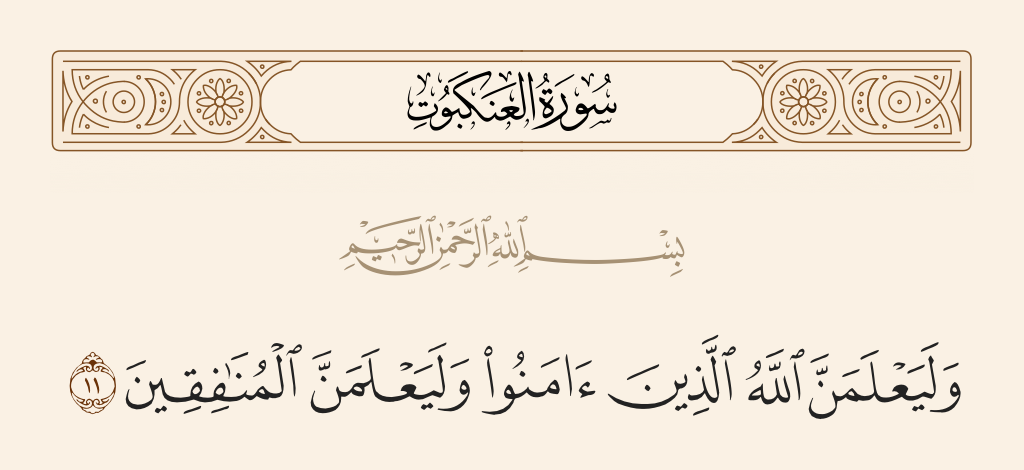 سُورَةُ الْعَنكَبُوتِ
بِسْمِ ٱللَّهِ ٱلرَّحْمَٰنِ ٱلرَّحِيمِ
وَلَيَعْلَمَنَّ ٱللَّهُ ٱلَّذِينَ ءَامَنُوا۟ وَلَيَعْلَمَنَّ ٱلْمُنَـٰفِقِينَ ١١